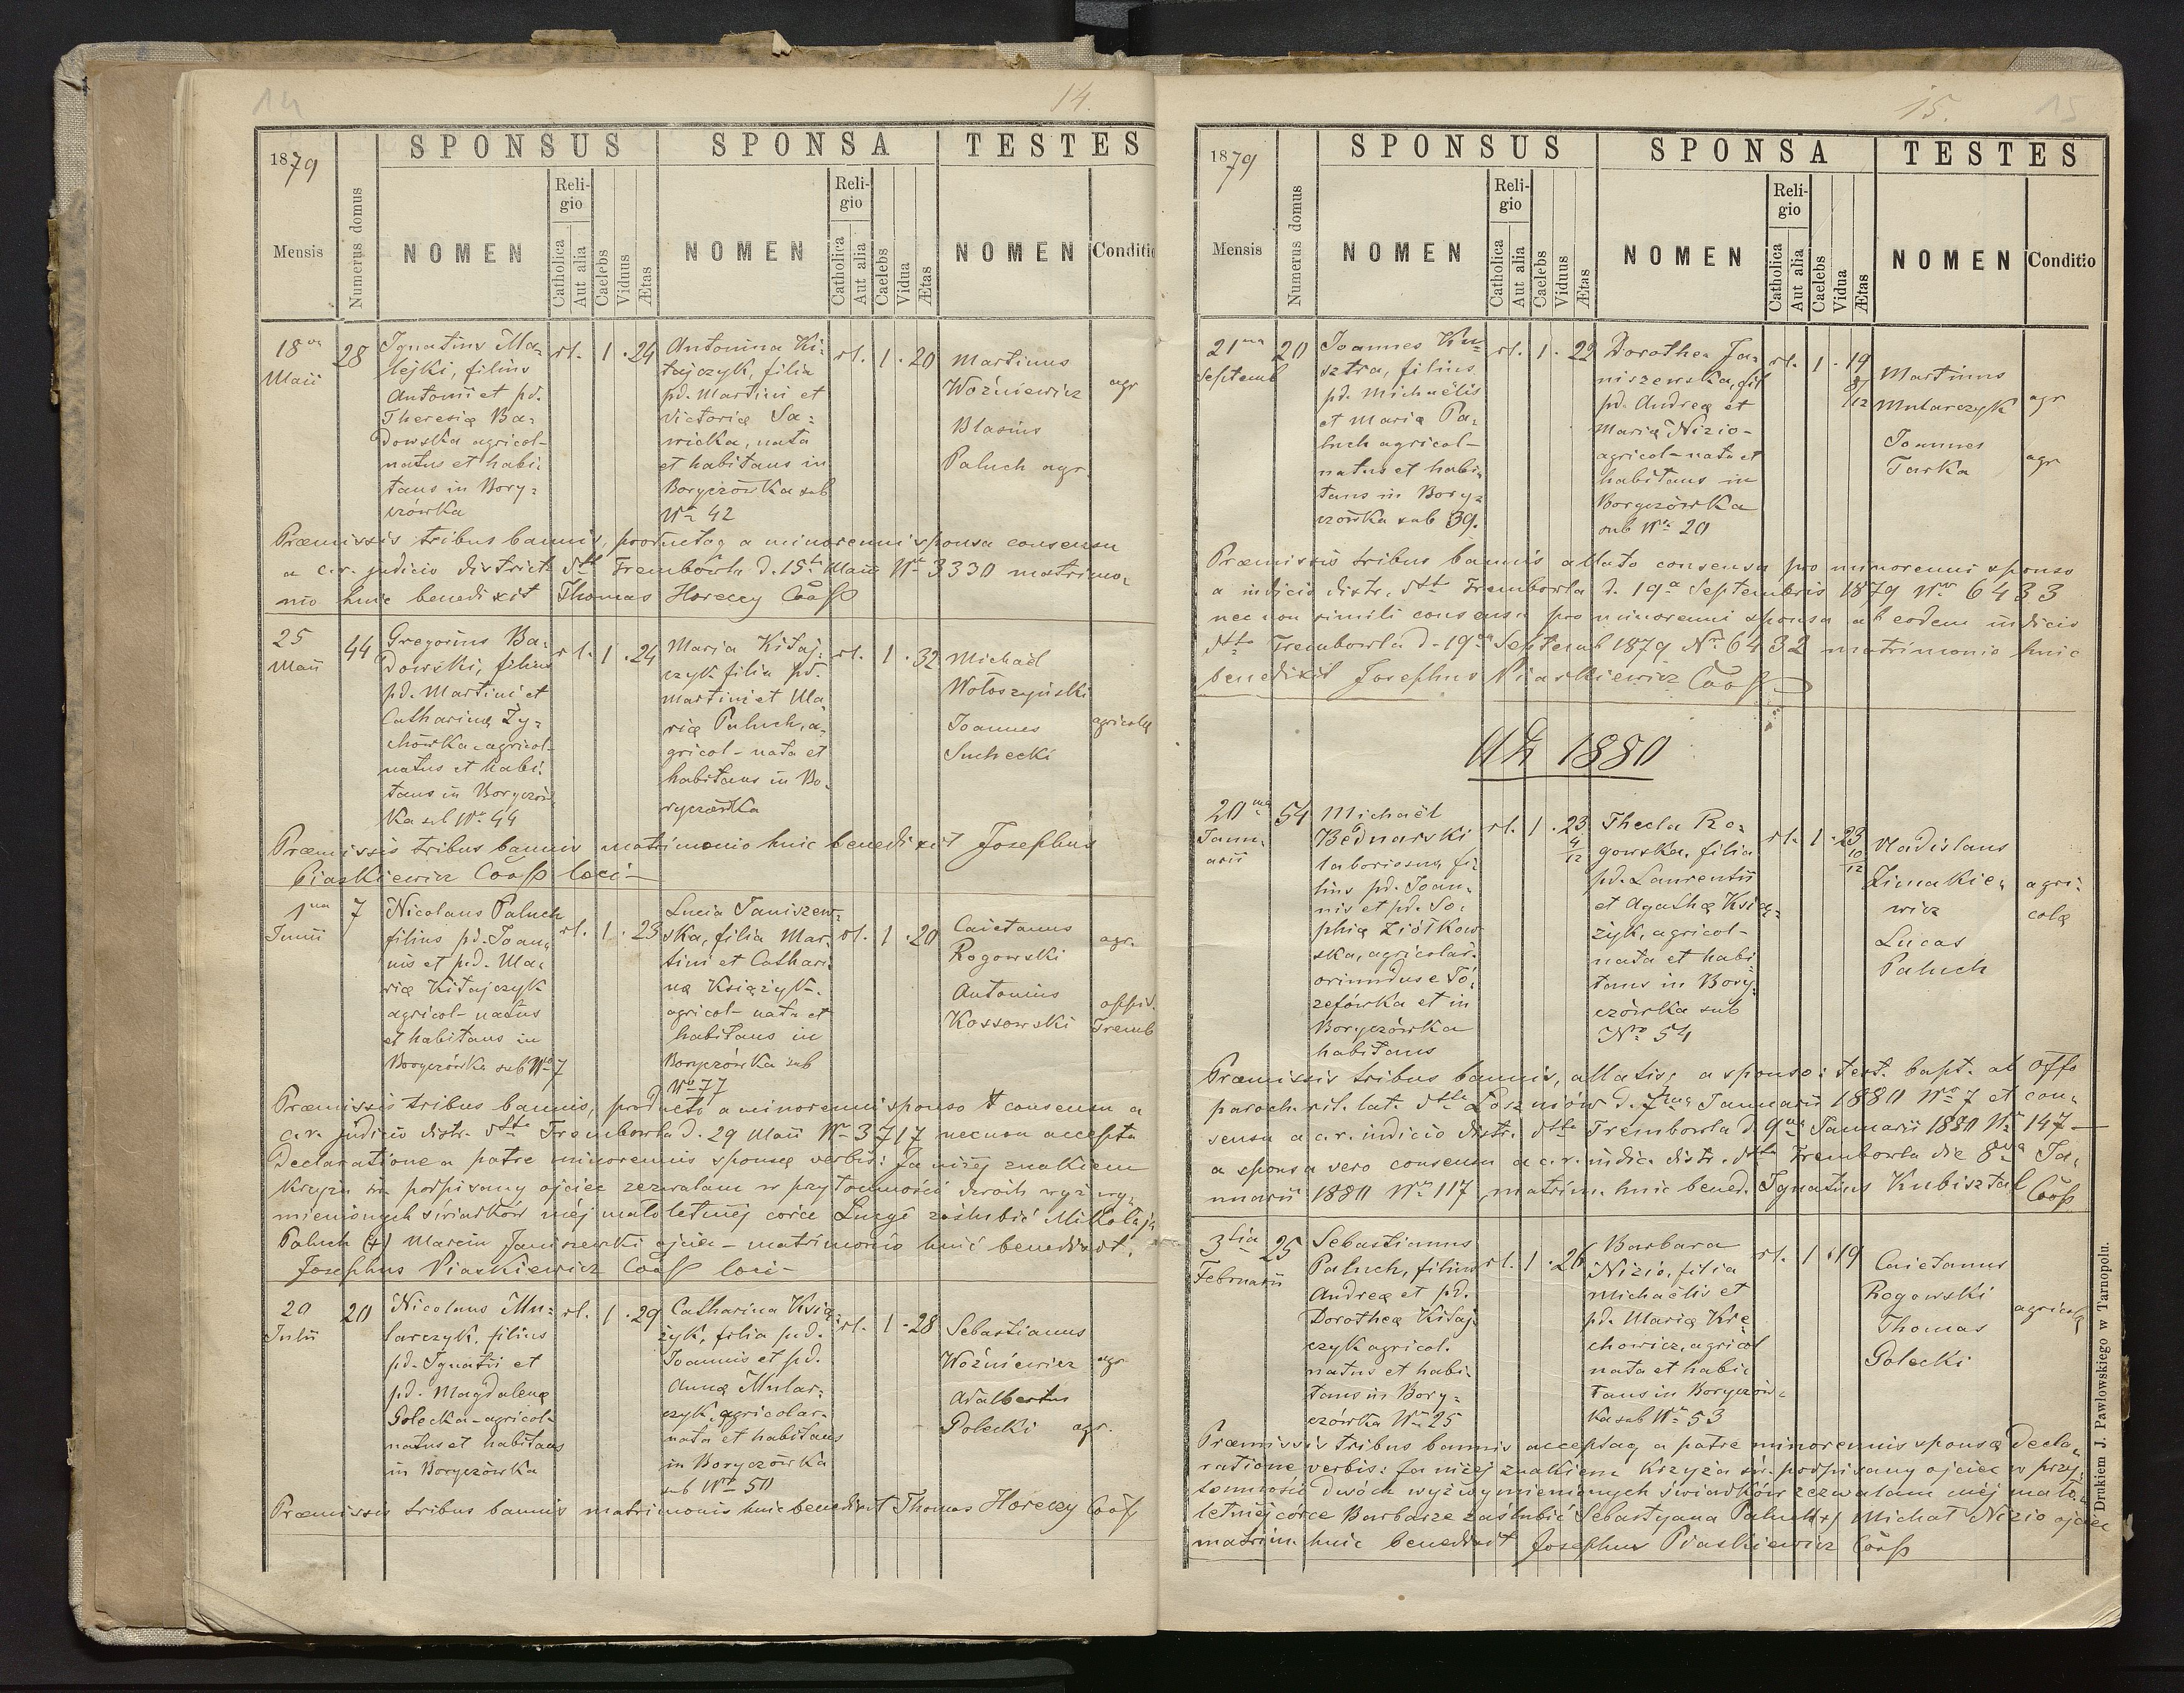 14
14.
1879
SPONSUS
SPONSA
TESTES
Mensis
Numerus domus
NOMEN
Religio
Catholica
Aut alia
Caelebs
Viduus
Ætas
NOMEN
Religio
Catholica
Aut alia
Caelebs
Vidua
Ætas
NOMEN
Conditio
18va
Maii
28
Ignatius Ma=
lejki, filius
Antonii et pd.
Theresiæ Ba=
dowska agricol-
natus et habi=
tans in Bory=
czówka
rl. 1 . 24
Antonina Ki=
tajczyk, filia
pd. Martini et
Victoriæ Sa=
wicka, nata
et habitans in
Boryczówka sub
Nro 42
rl. 1 . 20
Martinus
Woźniewicz
agr
Blasius
Paluch agr.
Præmissis tribus bannis, productoq a minorenni sponsa consensu
a c.r. judicio district dtt Trembowla d. 15ta Maii Nro 3330 matrimo=
nio huic benedixit Thomas Horeczy Coop
25
Maii
44
Gregorius Ba=
dowski, filius
pd. Martini et
Catharinæ Ży=
chówka agricol-
natus et habi=
tans in Boryczów
ka sub Nro 44
rl. 1 . 24
Maria Kitaj=
czyk filia pd.
Martini et Ma=
riæ Paluch, a=
gricol- nata et
habitans in Bo=
ryczówka
rl. 1 . 32
Michaël
Wołoszyński
Joannes
Suchecki
agricolæ
Præmissis tribus bannis matrimonio huic benedixit Josephus
Piaskiewicz Coop loci -
1ma
Junii
7
Nicolaus Paluch
filius pd. Joan=
nis et pd. Ma=
riæ Kitajczyk
agricol- natus
et habitans in
Boryczówka sub Nro 7
rl. 1 . 23
Lucia Janiszew=
ska, filia Mar=
tini et Cathari=
næ Księżyk.
agricol- nata et
habitans in
Boryczówka sub
Nro 77
rl. 1 . 20
Caietanus
Rogowski
agr.
Antonius
Kossowski
oppid.
Tremb
Præmissis tribus bannis, producto a minorenni sponso consensu a
c.r. judicio distr. dtto Trembowla d. 29 Maii Nro 3717 necnon accepta
declaratione a patre minorennis sponsæ verbis: Ja niżej znakiem
krzyża św. podpisany ojciec zezwalam w przytomności dwóch wyż wy=
mienionych świadków méj małoletniéj córce Łucyi zaślubić Mikołaja
Paluch (+) Marcin Janiszewski ojciec - matrimonio huic benedixit.
Josephus Piaskiewicz Coop loci -
20
Julii
20
Nicolaus Mu=
larczyk, filius
pd. Ignatii et
pd. Magdalenæ
Golecka - agricol-
natus et habitans
in Boryczówka
rl. 1 . 29
Catharina Księ=
żyk, filia pd.
Joannis et pd.
Annæ Mular=
czyk, agricolar-
nata et habitans
in Boryczówka
sub Nro 50
rl. 1 . 28
Sebastianus
Woźniewicz
agr
Adalbertus
Golecki
agr.
Præmissis tribus bannis matrimonio huic benedixit Thomas Horeczy Coop
15.
15
1879
SPONSUS
SPONSA
TESTES
Mensis
Numerus domus
NOMEN
Religio
Catholica
Aut alia
Caelebs
Viduus
Ætas
NOMEN
Religio
Catholica
Aut alia
Caelebs
Vidua
Ætas
NOMEN
Conditio
21ma
Septemb
20
Joannes Ku=
sztra, filius
pd. Michaëlis
et Mariæ Pa=
luch agricol-
natus et habi=
tans in Bory=
czówka sub 39.
rl. 1 . 22
Dorothea Ja=
niszewska, fil
pd. Andreæ et
Mariæ Nizio-
agricol- nata et
habitans in
Boryczówka
sub Nro 20
rl. 1 . 19
8/12
Martinus
Mularczyk
agr
Joannes
Turka
agr
Præmissis tribus bannis allato consensu pro minorenni sponso
a iudicio distr. dtt Trembowla d. 19a Septembris 1879 Nro 6433
nec non simili consensu pro minorenni sponsa ab eodem iudicio
dtto Trembowla d. 19na Septemb 1879 Nro 6432 matrimonio huic
benedixit Josephus Piaskiewicz Coop -
1880
20ma
Janu=
arii
54
Michaël
Bednarski
laboriosus, fi=
lius pd. Joan=
nis et pd. So=
phiæ Ziółkow
ska, agricolar.
oriundus e Jó=
zefówka et in
Boryczówka
habitans
rl. 1 . 23
4/12
Thecla Ro=
gowska, filia
pd. Laurentii
et Agathæ Księ=
żyk, agricol-
nata et habi=
tans in Bory=
czówka sub
Nro 54
rl. 1 . 23
10/12
Vladislaus
Zimakie=
wicz
Lucas
Paluch
agri=
colæ
Præmissis tribus bannis, allatisq a sponso: test. bapt. ab offo
paroch. rit. lat. dtto Łoszniów d. 7ma Januarii 1880 Nro 7 et con=
sensu a c.r. iudicio distr. dtto Trembowla d. 9na Januarii 1880 Nro 147 -
a sponsa vero consensu a c.r. iudic. distr. dtto Trembowla die 8va Ja=
nuarii 1880 Nro 117, matrim. huic bened. Ignatius Kubisztal Coop
3tia
Februarii
25
Sebastianus
Paluch, filius
Andreæ et pd.
Dorotheæ Kitaj
czyk agricol.
natus et habi=
tans in Bory=
czówka Nro 25
rl. 1 . 26
Barbara
Nizio, filia
Michaëlis et
pd. Mariæ Kre=
chowicz, agricol
nata et habi=
tans in Boryczów=
ka sub Nro 53
rl. 1 . 19
Caietanus
Rogowski
Thomas
Golecki
agricolæ
Præmissis tribus bannis acceptaq a patre minorennis sponsæ decla=
ratione verbis: Ja niżéj znakiem krzyża św. podpisany ojciec w przy=
tomności dwóch wyżwymienionych świadków zezwalam méj mało=
letniéj córce Barbarze zaślubić Sebastyana Paluch (+) Michał Nizio ojciec
matrim. huic benedixit Josephus Piaskiewicz Coop
Drukiem J. Pawłowskiego w Tarnopolu.